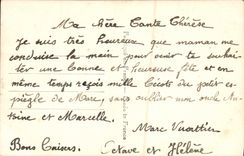 Ma chère Tante Thérèse
Je suis très heureux que maman me
conduise la main pour venir te souhai-
ter une bonne et heureuse fête et en
même temps reçois mille bécots du petit es-
piègle de Marc, sans oublier mon oncle An-
toine et Marcelle.
Marc
Bons baisers. Octave et Hélène